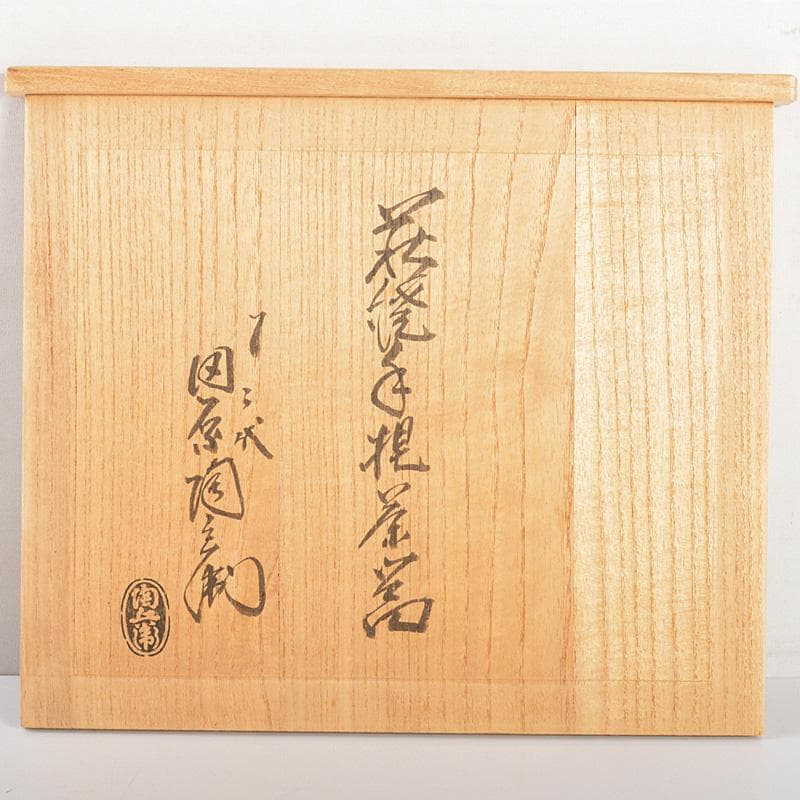 萩焼手捏茶器
十二代
田原陶兵衛
陶兵衛